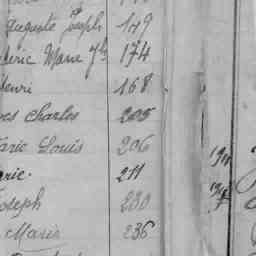 Auguste Joseph 149
deric Marie Jh 174
Henri 168
es Charles 205
arie Louis 206
arie. 211
Joseph 230
Marie 236